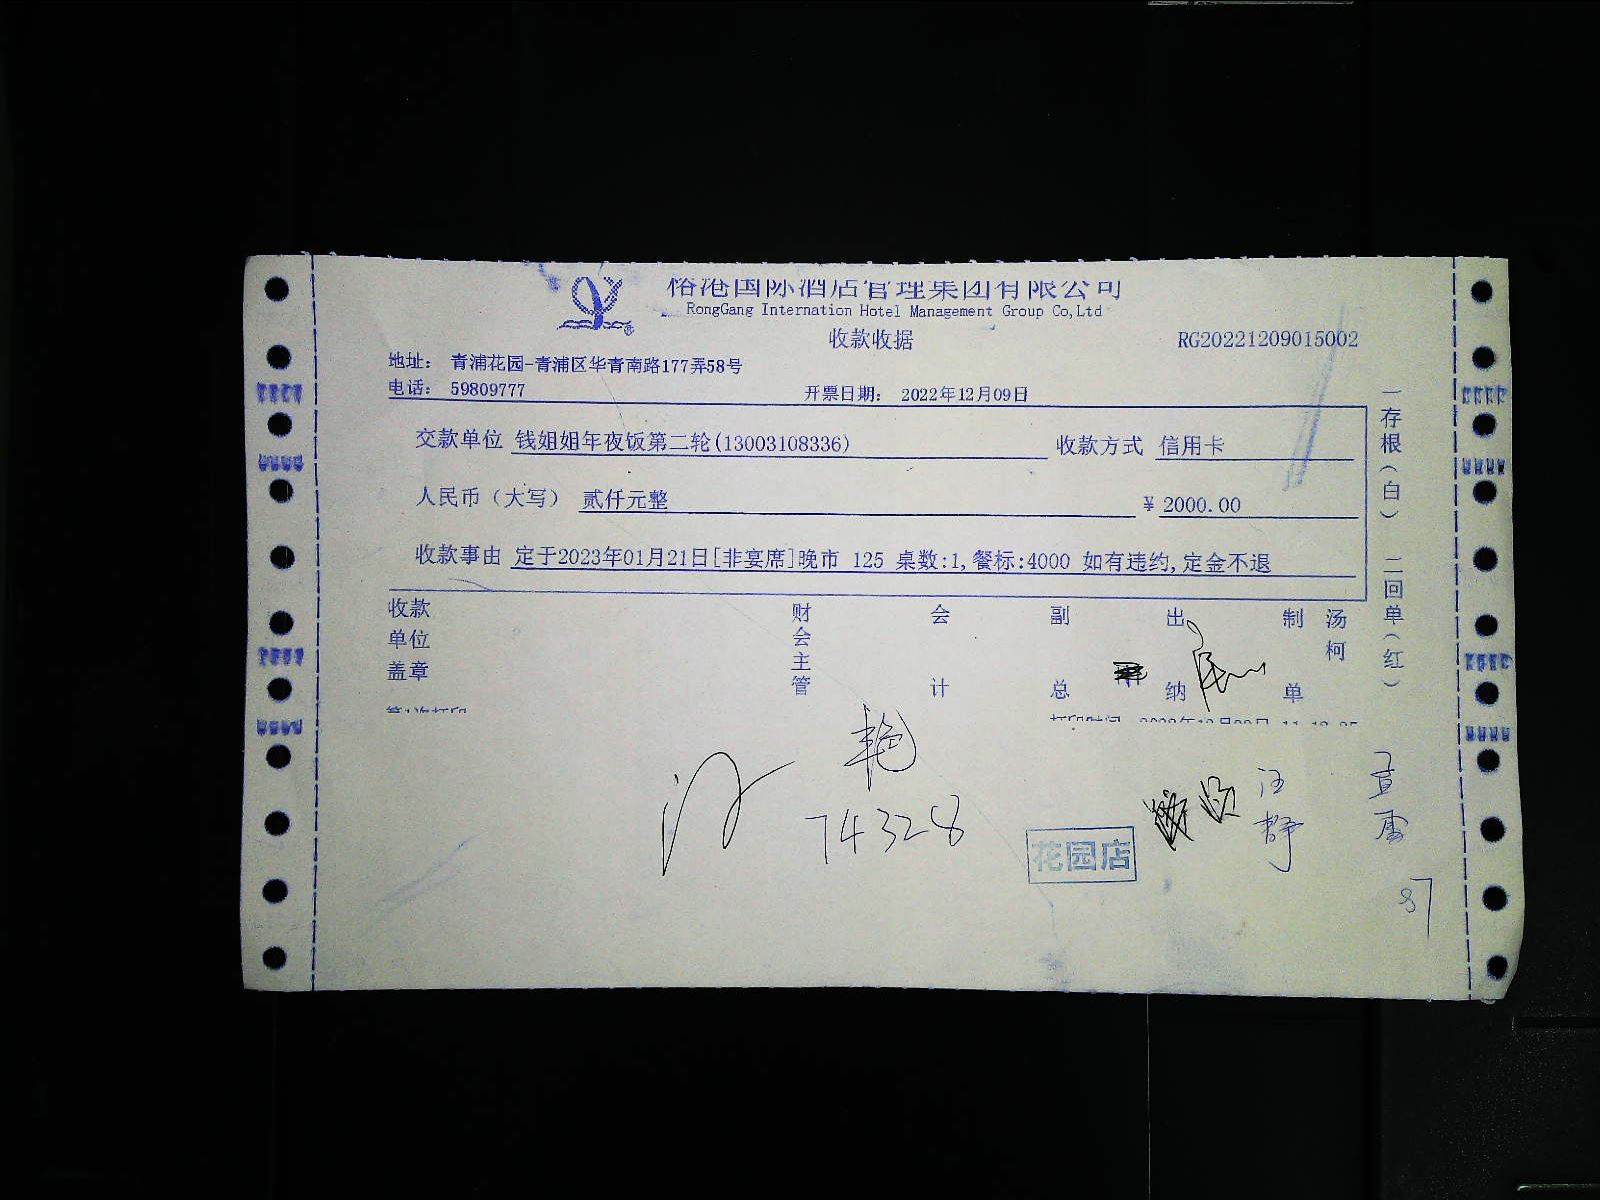 榕港国际酒店管理集团有限公司
RongGang Internation Hotel Management Group Co,Ltd
收款收据
RG20221209015002
地址： 青浦花园-青浦区华青南路177弄58号
电话： 59809777
开票日期： 2022年12月09日
交款单位 钱姐姐年夜饭第二轮(13003108336) 收款方式 信用卡
人民币（大写） 贰仟元整 ¥ 2000.00
收款事由 定于2023年01月21日[非宴席]晚市 125 桌数:1,餐标:4000 如有违约,定金不退
收款单位盖章
财会主管
会计
副总
出纳
制单
汤柯
一存根（白） 二回单（红）
艳
74328
花园店
汪静
87